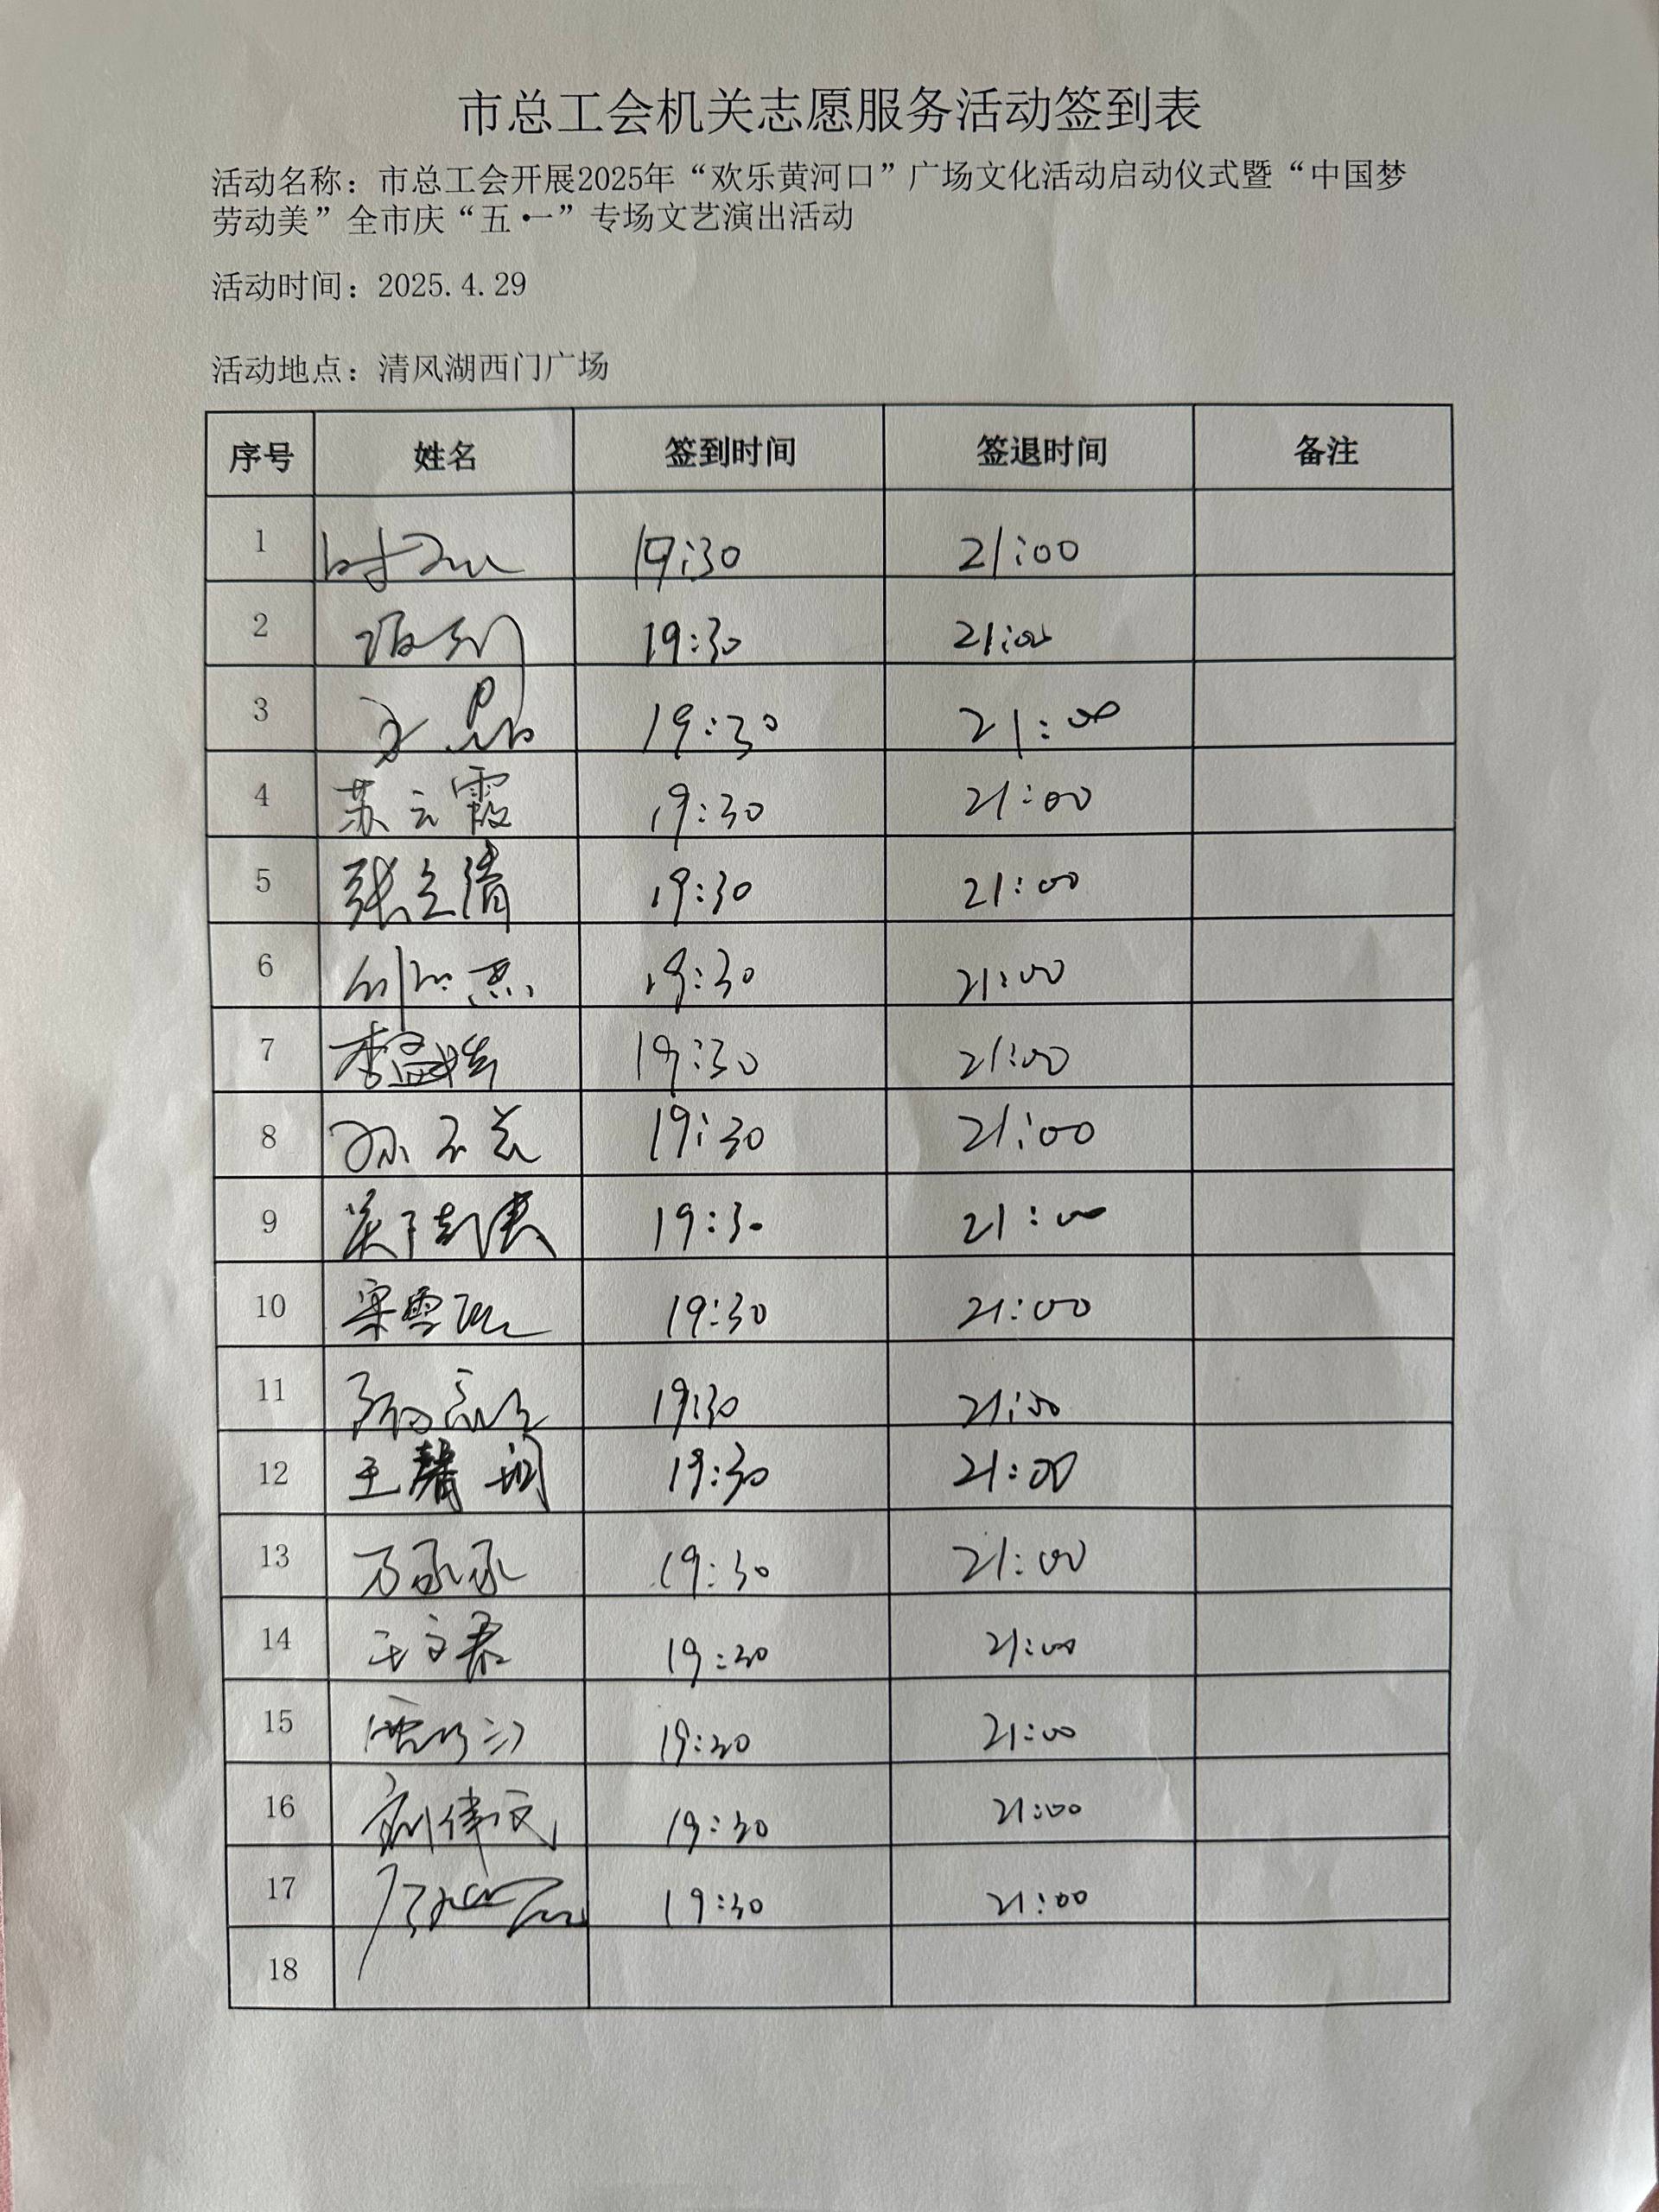 市总工会机关志愿服务活动签到表
活动名称：市总工会开展2025年“欢乐黄河口”广场文化活动启动仪式暨“中国梦
劳动美”全市庆“五·一”专场文艺演出活动
活动时间：2025.4.29
活动地点：清风湖西门广场
序号 姓名 签到时间 签退时间 备注
1 19:30 21:00
2 19:30 21:00
3 19:30 21:00
4 苏云霞 19:30 21:00
5 张立清 19:30 21:00
6 19:30 21:00
7 19:30 21:00
8 19:30 21:00
9 19:30 21:00
10 19:30 21:00
11 19:30 21:00
12 王馨 19:30 21:00
13 19:30 21:00
14 王文君 19:30 21:00
15 19:30 21:00
16 19:30 21:00
17 19:30 21:00
18